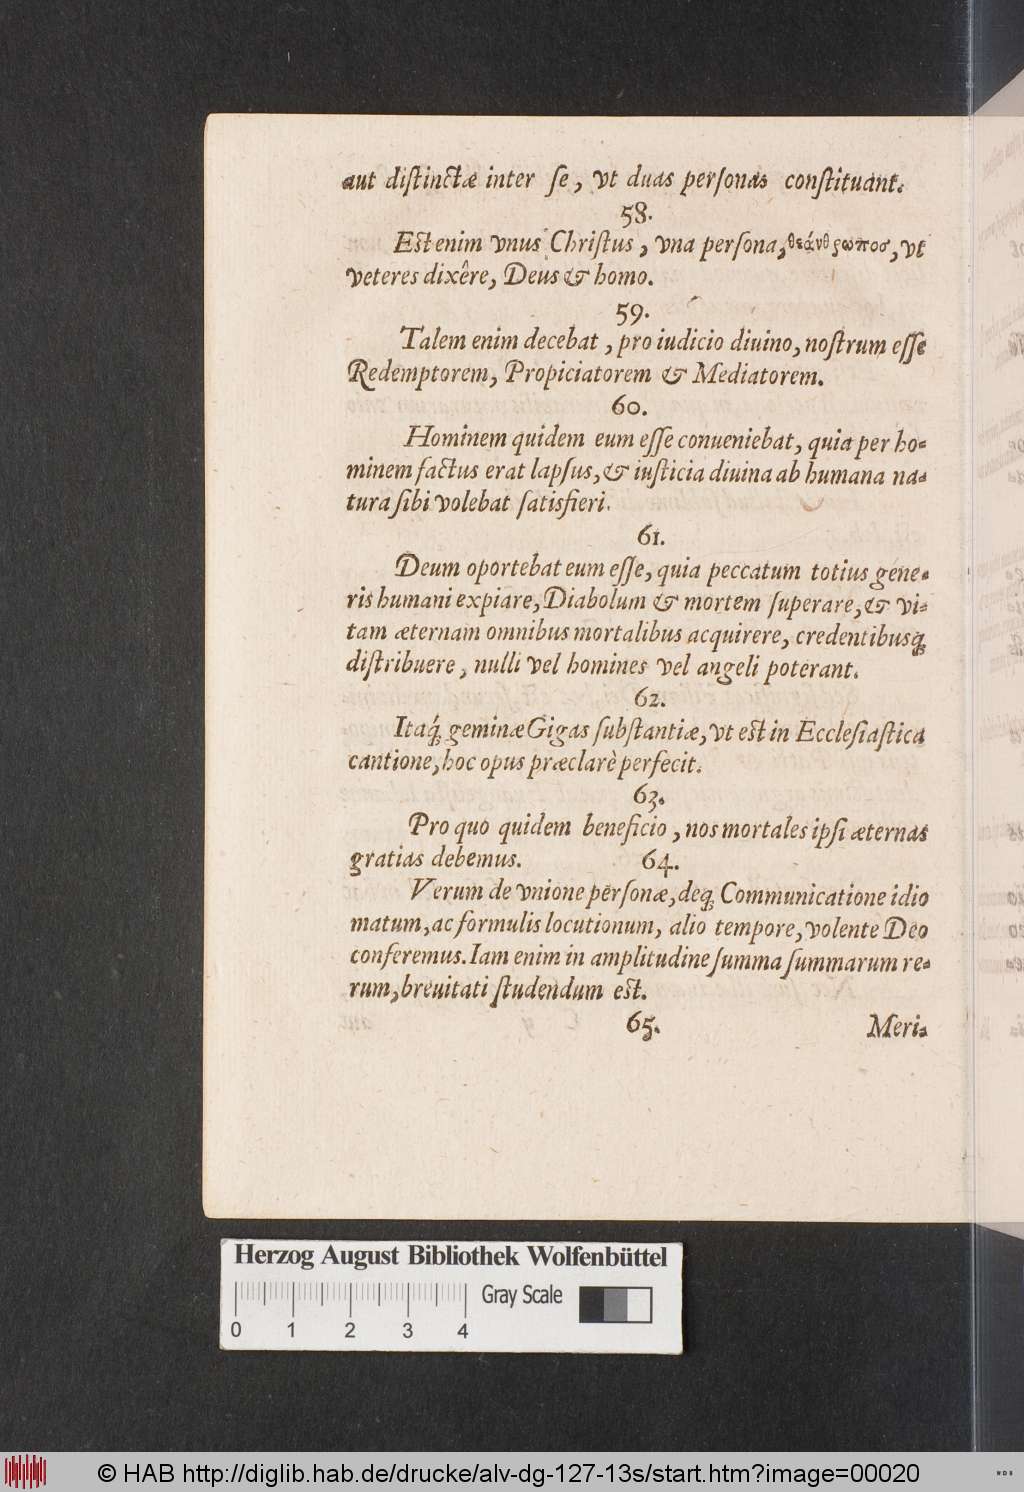 aut diſtinctæ inter ſe, vt duas perſonas conſtituant.
58.
Eſt enim vnus Chriſtus, vna perſona, θεάνθρωπος, vt
veteres dixêre, Deus & homo.
59.
Talem enim decebat, pro iudicio diuino, noſtrum eſſe
Redemptorem, Propiciatorem & Mediatorem.
60.
Hominem quidem eum eſſe conueniebat, quia per ho-
minem factus erat lapſus, & iuſticia diuina ab humana na-
tura ſibi volebat ſatisfieri.
61.
Deum oportebat eum eſſe, quia peccatum totius gene-
ris humani expiare, Diabolum & mortem ſuperare, & vi-
tam æternam omnibus mortalibus acquirere, credentibusq́;
diſtribuere, nulli vel homines vel angeli poterant.
62.
Itaq́; geminæ Gigas ſubſtantiæ, vt eſt in Eccleſiaſtica
cantione, hoc opus præclarè perfecit.
63.
Pro quo quidem beneficio, nos mortales ipſi æternas
gratias debemus. 64.
Verum de vnione perſonæ, deq; Communicatione idio
matum, ac formulis locutionum, alio tempore, volente Deo
conferemus. Iam enim in amplitudine ſumma ſummarum re-
rum, breuitati ſtudendum eſt.
65. Meri-
Herzog August Bibliothek Wolfenbüttel
Gray Scale
0 1 2 3 4
© HAB http://diglib.hab.de/drucke/alv-dg-127-13s/start.htm?image=00020